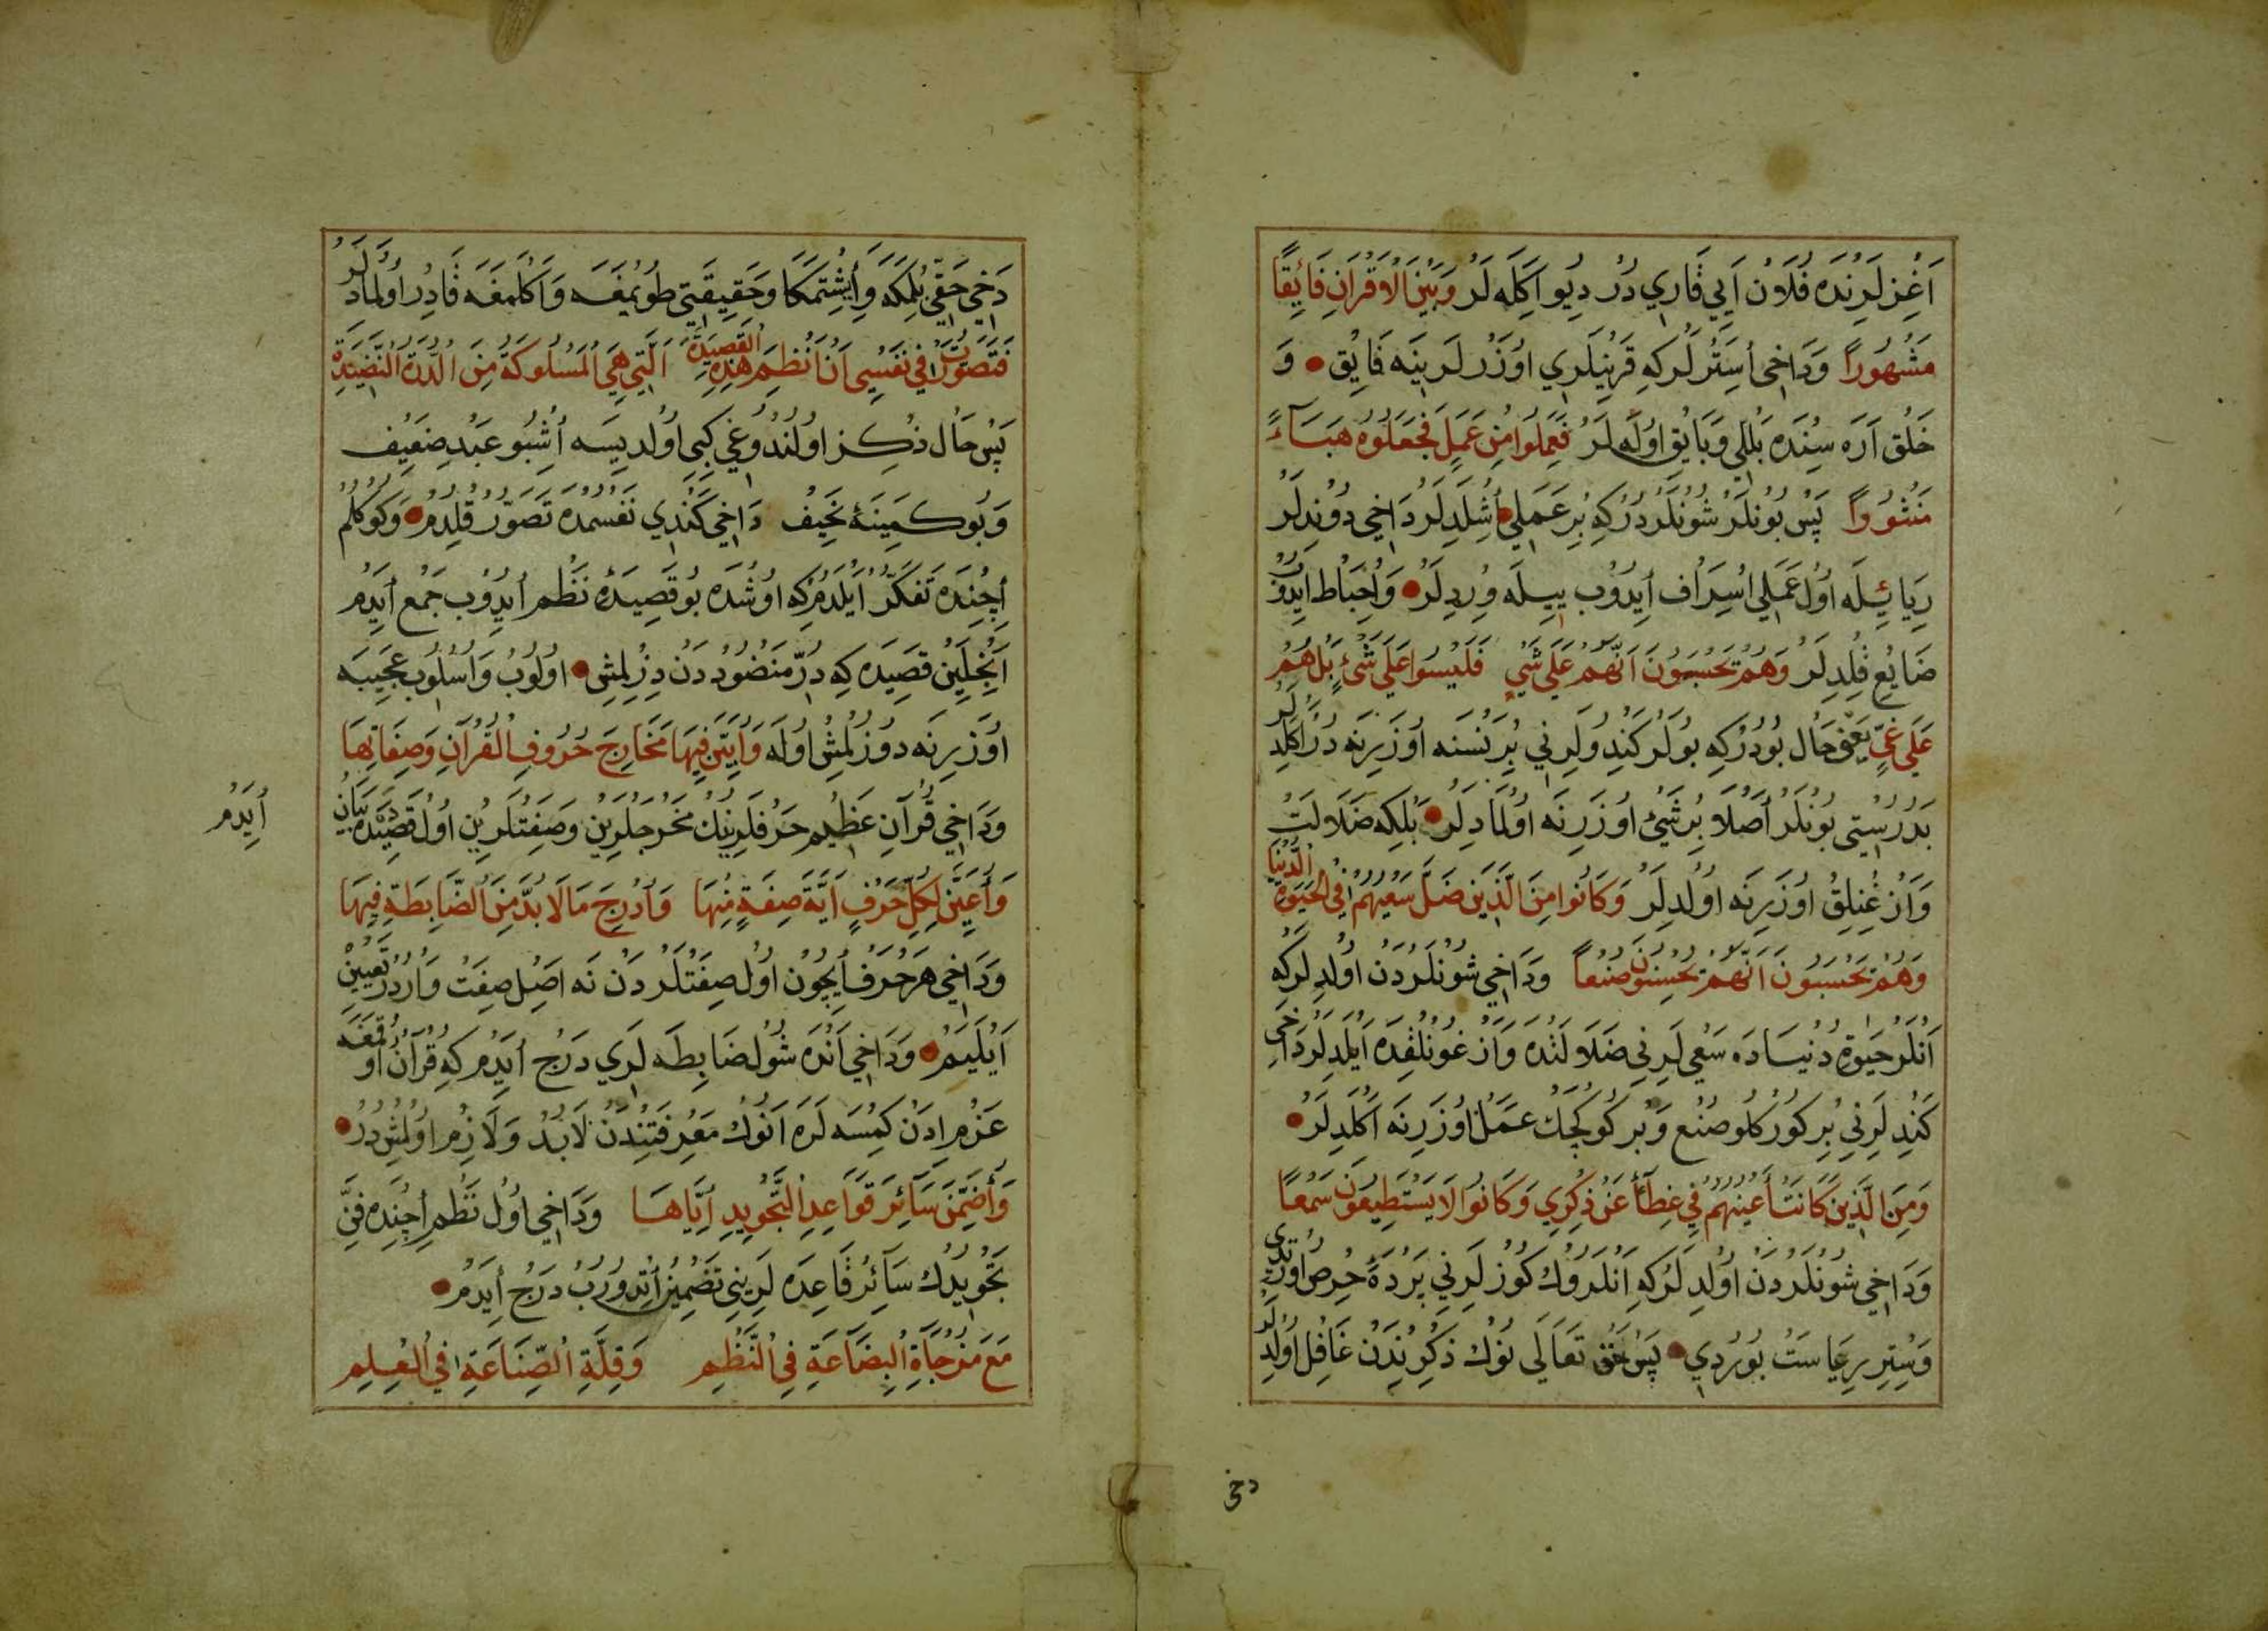 اَغِزلَرِنْدَه فُلَاوْنْ اَيِي قَارِي دُرْ دِيُو اَكِلَه لَرْ وَبَيْنَ الْاَقْرَانِ فَائِقًا
مَشْهُورًا وَدَاخِى اُسِتَرْلَركِه قَرِينِلَرِي اوُزَرْلَرِينَه فَائِق وَ
خَلْق اَرَه سِنْدَه بَللِي وَبَايِقْ اوُلَه لَرْ فَعَمِلُوا مِنْ عَمَلٍ فَجَعَلُوهُ هَبَاءً
مَنْثُورًا پَسْ بُونْلَرْ شُونْلَرْدُرْكِه بِرْ عَمَلِي اُشْلَدِلَرْ دَاخِي دُونْدِلَرْ
رِيَايِيلَه اوُل عَمَلِي اسْرَاف اِيدُوب يِيلَه وِرْدِلَرْ وَاِحْبَاط اِيدُوبْ
ضَايِع قِلْدِلَرْ وَهُمْ يَحْسَبُونَ اَنَّهُمْ عَلَى شَيْءٍ فَلَيْسُوا عَلَى شَيْءٍ بَلْ هُمْ
عَلَى غَيٍّ يَعْنِي حَال بُودُرْكِه بُونْلَر كَنْدُولَرِنِي بِرْ نَسْنَه اوُزَرِنَه دُرْ اَكْلَدِلَرْ
بَدُرُسْتِي بُونْلَرْ اَصْلَا بِرْ شَيْئ اوُزَرِنَه اوُلْمَادِلَرْ بَلْكِه ضَلَالَتْ
وَاَزْغُنْلِقْ اوُزَرِنَه اوُلْدِلَرْ وَكَانُوا مِنَ الَّذِينَ ضَلَّ سَعْيُهُمْ فِي الْحَيَوةِ الدُّنْيَا
وَهُمْ يَحْسَبُونَ اَنَّهُمْ يُحْسِنُونَ صُنْعًا وَدَاخِي شُونْلَرْدَنْ اوُلْدِلَرْكِه
اَنْلَرْ حَيٰوةِ دُنْيَادَه سَعْي لَرِنِي ضَلَالَتْدَه وَاَزْغُونْلُقْدَه اَيْلَدِلَرْ دَاخِي
كَنْدِلَرِنِي بِرْ كُورْكْلُو صُنْع وَبِرْ كُوكْجَكْ عَمَلْ اوُزَرِنَه اَكْلَدِلَرْ
وَمِنَ الَّذِينَ كَانَتْ أَعْيُنُهُمْ فِي غِطَاءٍ عَنْ ذِكْرِي وَكَانُوا لَا يَسْتَطِيعُونَ سَمْعًا
وَدَاخِي شُونْلَرْدَنْ اوُلْدِلَرْكِه اَنْلَرُوكْ كُوزْلَرِنِي پَرْدَهٔ حِرْص اوُرْتْدِى
وَسِتْرِ رِيَاسَتْ بُورُدِي پَسْ حَقْ تَعَالَى نُوكْ ذِكْرِنْدَنْ غَافِل اوُلْدِلَرْ
دخى
دَخِي حَقِّي بِلْمَكَه وَاِشِتْمَكَا وَحَقِيقَتِي طُويْمَغَه وَاَكْلَمَغَه قَادِر اوُلْمَادِلَرْ
فَتَصَوَّرْتُ فِي نَفْسِي اَنْ اَنْظِمَ هٰذِهِ القَصِيدَةَ الَّتِي هِيَ الْمَسْلُوكَةُ مِنَ الدُّرَّةِ النَّضِيدَةِ
پَسْ حَال ذِكْر اوُلُنْدُوغِي كِبِي اوُلِيِسَه اُشْبُو عَبْدِ ضَعِيف
وَبُو كَمِينَهٔ نَحِيف دَاخِي كَنْدِي نَفْسُمْدَه تَصَوُّرْ قِلْدِمْ وَكُوكْلُمْ
اِچِنْدَه تَفَكُّرْ اَيْلَدِمْكِه اوُشْدَه بُو قَصِيدَهٔ نَظْم اِيدُوب جَمْع اِيدَمْ
اَنْجِلَيِنْ قَصِيدَه كِه دُرِّ مَنْضُودْدَنْ دِزِلْمِشْ اوُلُوبْ وَاُسْلُوبِ عَجِيبَه
اوُزَرِنَه دُوزُلْمِشْ اوُلَه وَاُبَيِّنَ فِيهَا مَخَارِجَ حُرُوفِ الْقُرْآنِ وَصِفَاتِهَا
وَدَاخِي قُرْآنِ عَظِيم حَرْفلَرِينُكْ مَخْرَجلَرِينْ وَصِفَتْلَرِينْ اوُل قَصِيدَه دَه بَيَانْ
اِيدَمْ
وَاُعَيِّنَ لِكُلِّ حَرْفٍ اَيَّةَ صِفَةٍ مِنْهَا وَاُدْرِجَ مَا لَا بُدَّ مِنَ الضَّابِطَةِ فِيهَا
وَدَاخِي هَرْ حَرْف اِيچُونْ اوُل صِفَتْلَرْدَنْ نَه اَصِل صِفَتْ وَارْدُرْ تَعْيِينْ
اَيْلَيَمْ وَدَاخِي اَنْدَه شُولْ ضَابِطَه لَرِي دَرْج اِيدَمْ كِه قُرْآنْ اوُقُمَغَه
عَزْم اِدَنْ كِمْسَه لَرَه اَنُوكْ مَعْرِفَتِنْدَنْ لَابُدْ وَلَازِمْ اوُلْمِشْدُرْ
وَاُضَمِّنَ سَائِرَ قَوَاعِدِ التَّجْوِيدِ اِيَّاهَا وَدَاخِي اوُل نَظْم اِچِنْدَه فَنِّ
تَجْوِيدُكْ سَائِرْ قَاعِدَه لَرِينِي تَضْمِينْ اِتْدُورُبْ دَرْج اِيدَمْ
مَعَ مُزْجَاةِ الْبِضَاعَةِ فِي النَّظْمِ وَقِلَّةِ الصِّنَاعَةِ فِي الْعِلْمِ